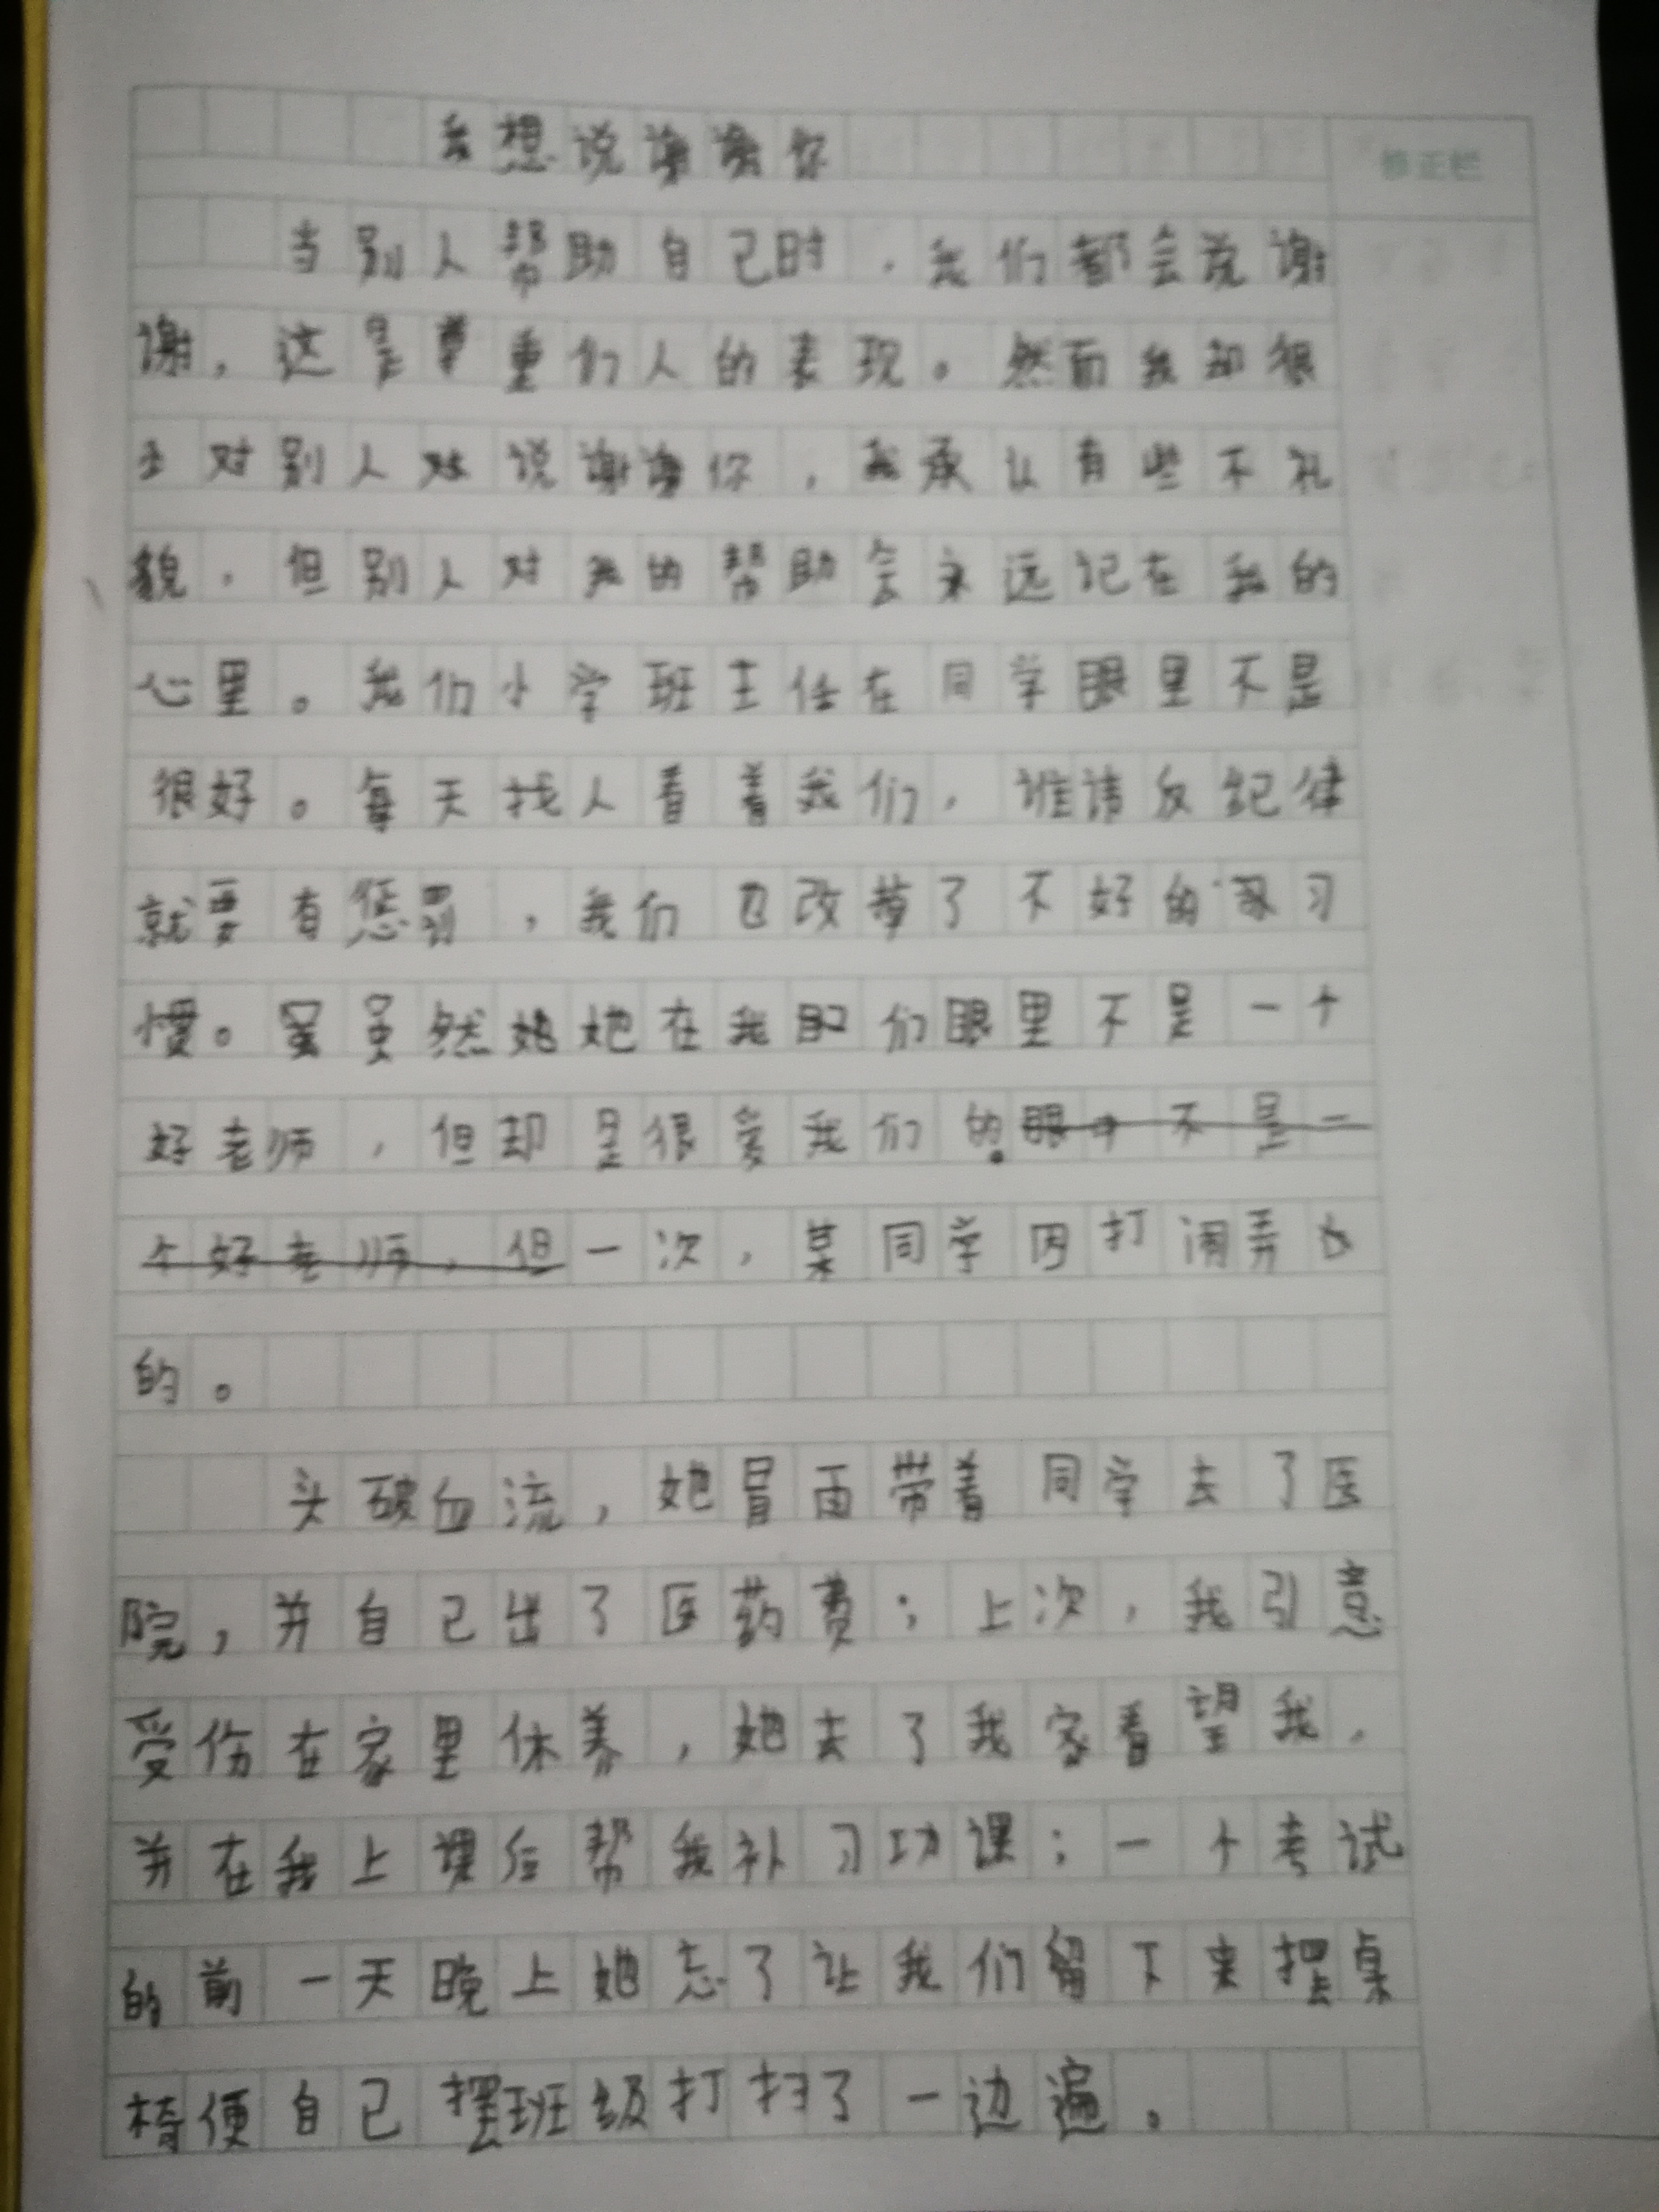 我想说谢谢你
修正栏
当别人帮助自己时，我们都会说谢
谢，这是尊重们人的表现。然而我却很
对别人对说谢谢你，我承认有些不礼
貌，但别人对我的帮助会永远记在我的
心里。我们小学班主任在同学眼里不是
很好。每天找人看着我们，谁请反纪律
就要有惩罚，我们也改掉了不好的习
惯。虽虽然她她在我眼们眼里不是一个
好老师，但却是很爱我们的。眼中不是一
个好老师，但一次，某同学因打闹弄
的。
头破血流，她冒雨带着同学去了医
院，并自己出了医药费；上次，我引意
受伤在家里休养，她去了我家看望我，
并在我上课后帮我补习功课；一个考试
的前一天晚上她忘了让我们留下来摆桌
椅便自己摆班级打扫了一边遍。